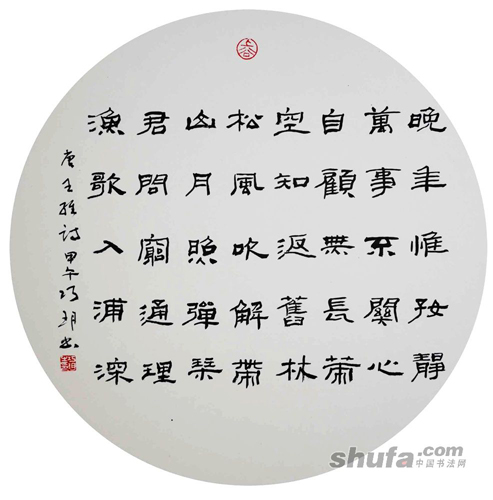 晚年惟好靜
萬事不關心
自顧無長策
空知返舊林
松風吹解帶
山月照彈琴
君問窮通理
漁歌入浦深
唐王維詩甲午
shufa.com
中国书法网